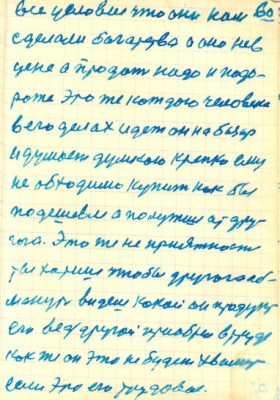 все условия что они нам
сделали багарства а оно нев
цене а продат надо и подо-
роже Это же каждого человека
в его делах идет он на базар
и думает думкою крепко ему
не обходимо купит как бы
подешевле а получше а дру-
гога. Это же не приятност
ты хочиш чтобы другога об-
манут видеш какой он продукт
его вед другой приобрел в труде
как же он Это не будеш
если Это его трудовое.